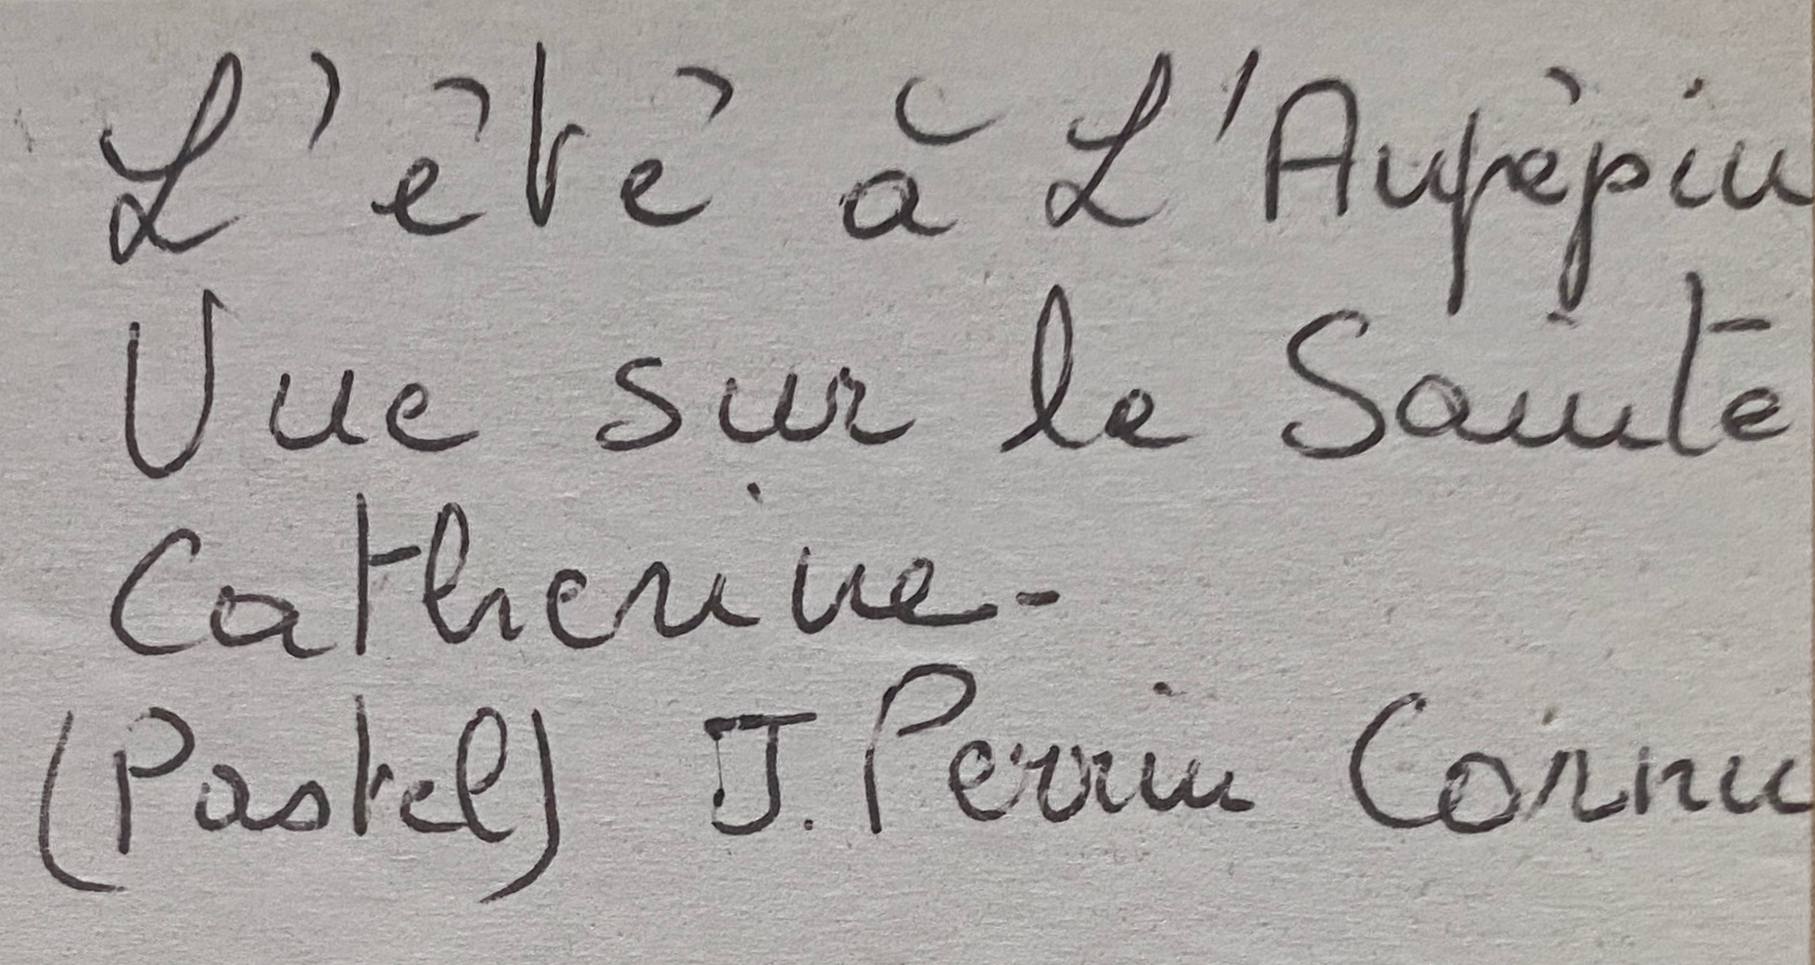 L'été à L'Aupépin
Vue sur la Sainte
Catherine-
(Pastel) J. Perrin Cornu